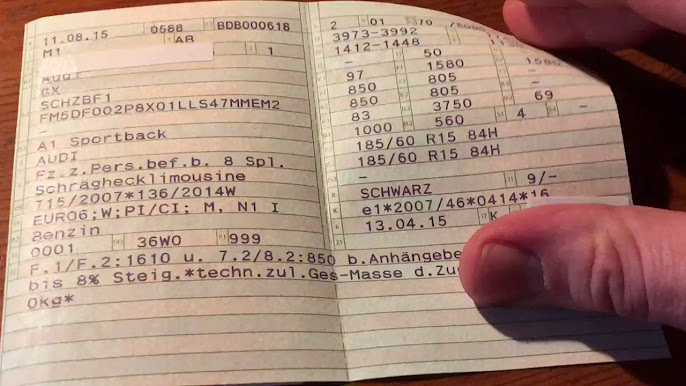 11.08.15 0588 BDB000618
M1 AR
1
AUDI
8X
SCHZBF1
FM5DF002P8X01LLS47MMEM2
-
A1 Sportback
AUDI
Fz.z.Pers.bef.b. 8 Spl.
Schräghecklimousine
715/2007*136/2014W
EURO6;W;PI/CI; M, N1 I
Benzin
0001 36W0 999
F.1/F.2:1610 u. 7.2/8.2:850 b.Anhängebe
bis 8% Steig.*techn.zul.Ges-Masse d.Zu
0kg*
2 01 070
3973-3992
1412-1448
- 50
97 1580
850 805
850 805
83 3750 69
1000 560 4 -
185/60 R15 84H
185/60 R15 84H
-
SCHWARZ 9/-
e1*2007/46*0414*16
13.04.15 K